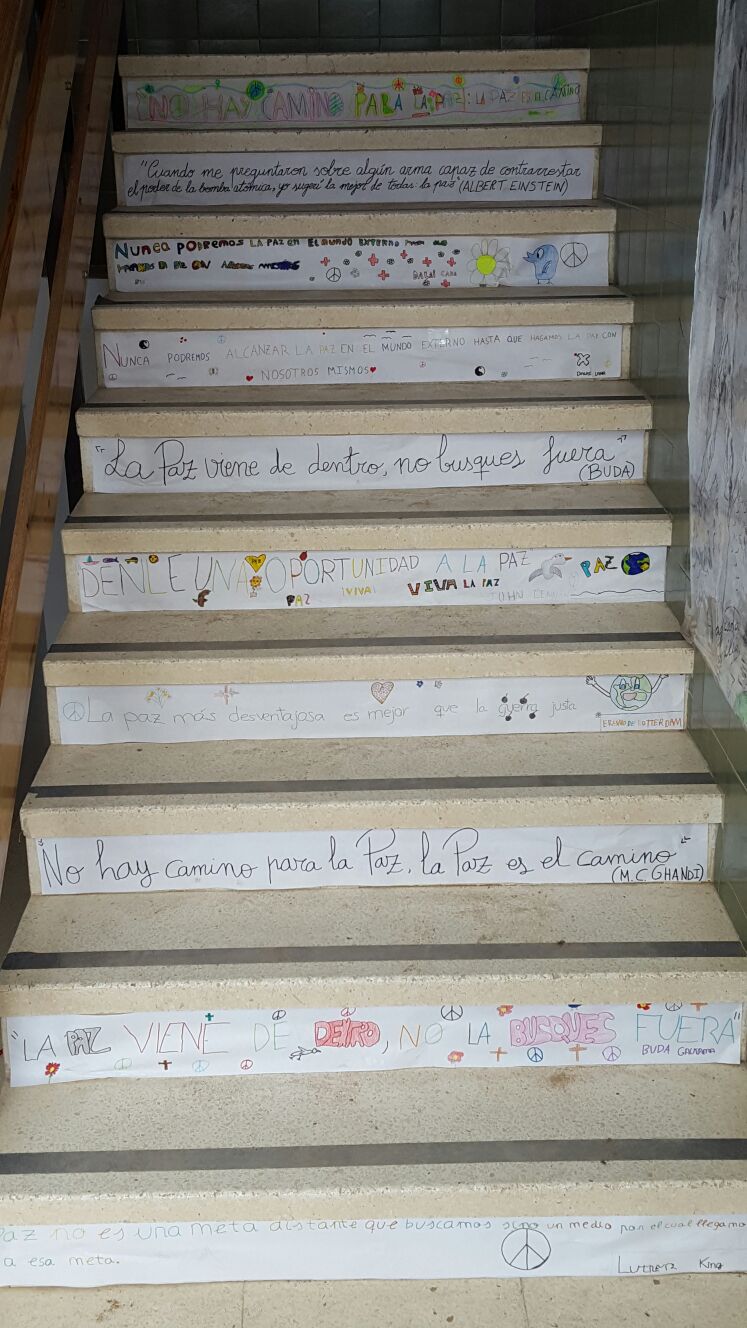 NO HAY CAMINO PARA LA PAZ: LA PAZ ES EL CAMINO
"Cuando me preguntaron sobre algún arma capaz de contrarrestar
el poder de la bomba atómica, yo sugerí la mejor de todas: la paz" (ALBERT EINSTEIN)
NUNCA PODREMOS LA PAZ EN EL MUNDO EXTERNO
NUNCA PODREMOS ALCANZAR LA PAZ EN EL MUNDO EXTERNO HASTA QUE HAGAMOS LA PAZ CON
NOSOTROS MISMOS
"La Paz viene de dentro, no busques fuera"
(BUDA)
DENLE UNA OPORTUNIDAD A LA PAZ PAZ
PAZ ¡VIVA! VIVA LA PAZ JOHN
La paz más desventajosa es mejor que la guerra justa
ERASMO DE ROTTERDAM
"No hay camino para la Paz, la Paz es el camino"
(M.C. GHANDI)
"LA PAZ VIENE DE DENTRO, NO LA BUSQUES FUERA"
BUDA GAUTAMA
Paz no es una meta distante que buscamos sino un medio por el cual llegamo
a esa meta. Luther King